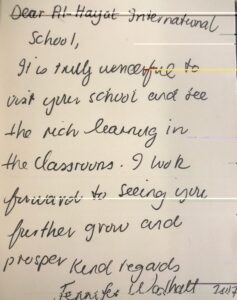 Dear Al-Hayat International
School,
It is truly wonderful to
visit your school and see
the rich learning in
the classrooms. I look
forward to seeing you
further grow and
prosper Kind regards
Jennifer 2017